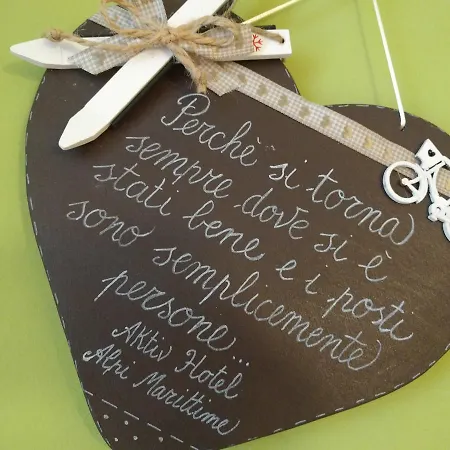 Perchè si torna
sempre dove si è
stati bene e i posti
sono semplicemente
persone...
Aktiv Hotel
Alpi Marittime